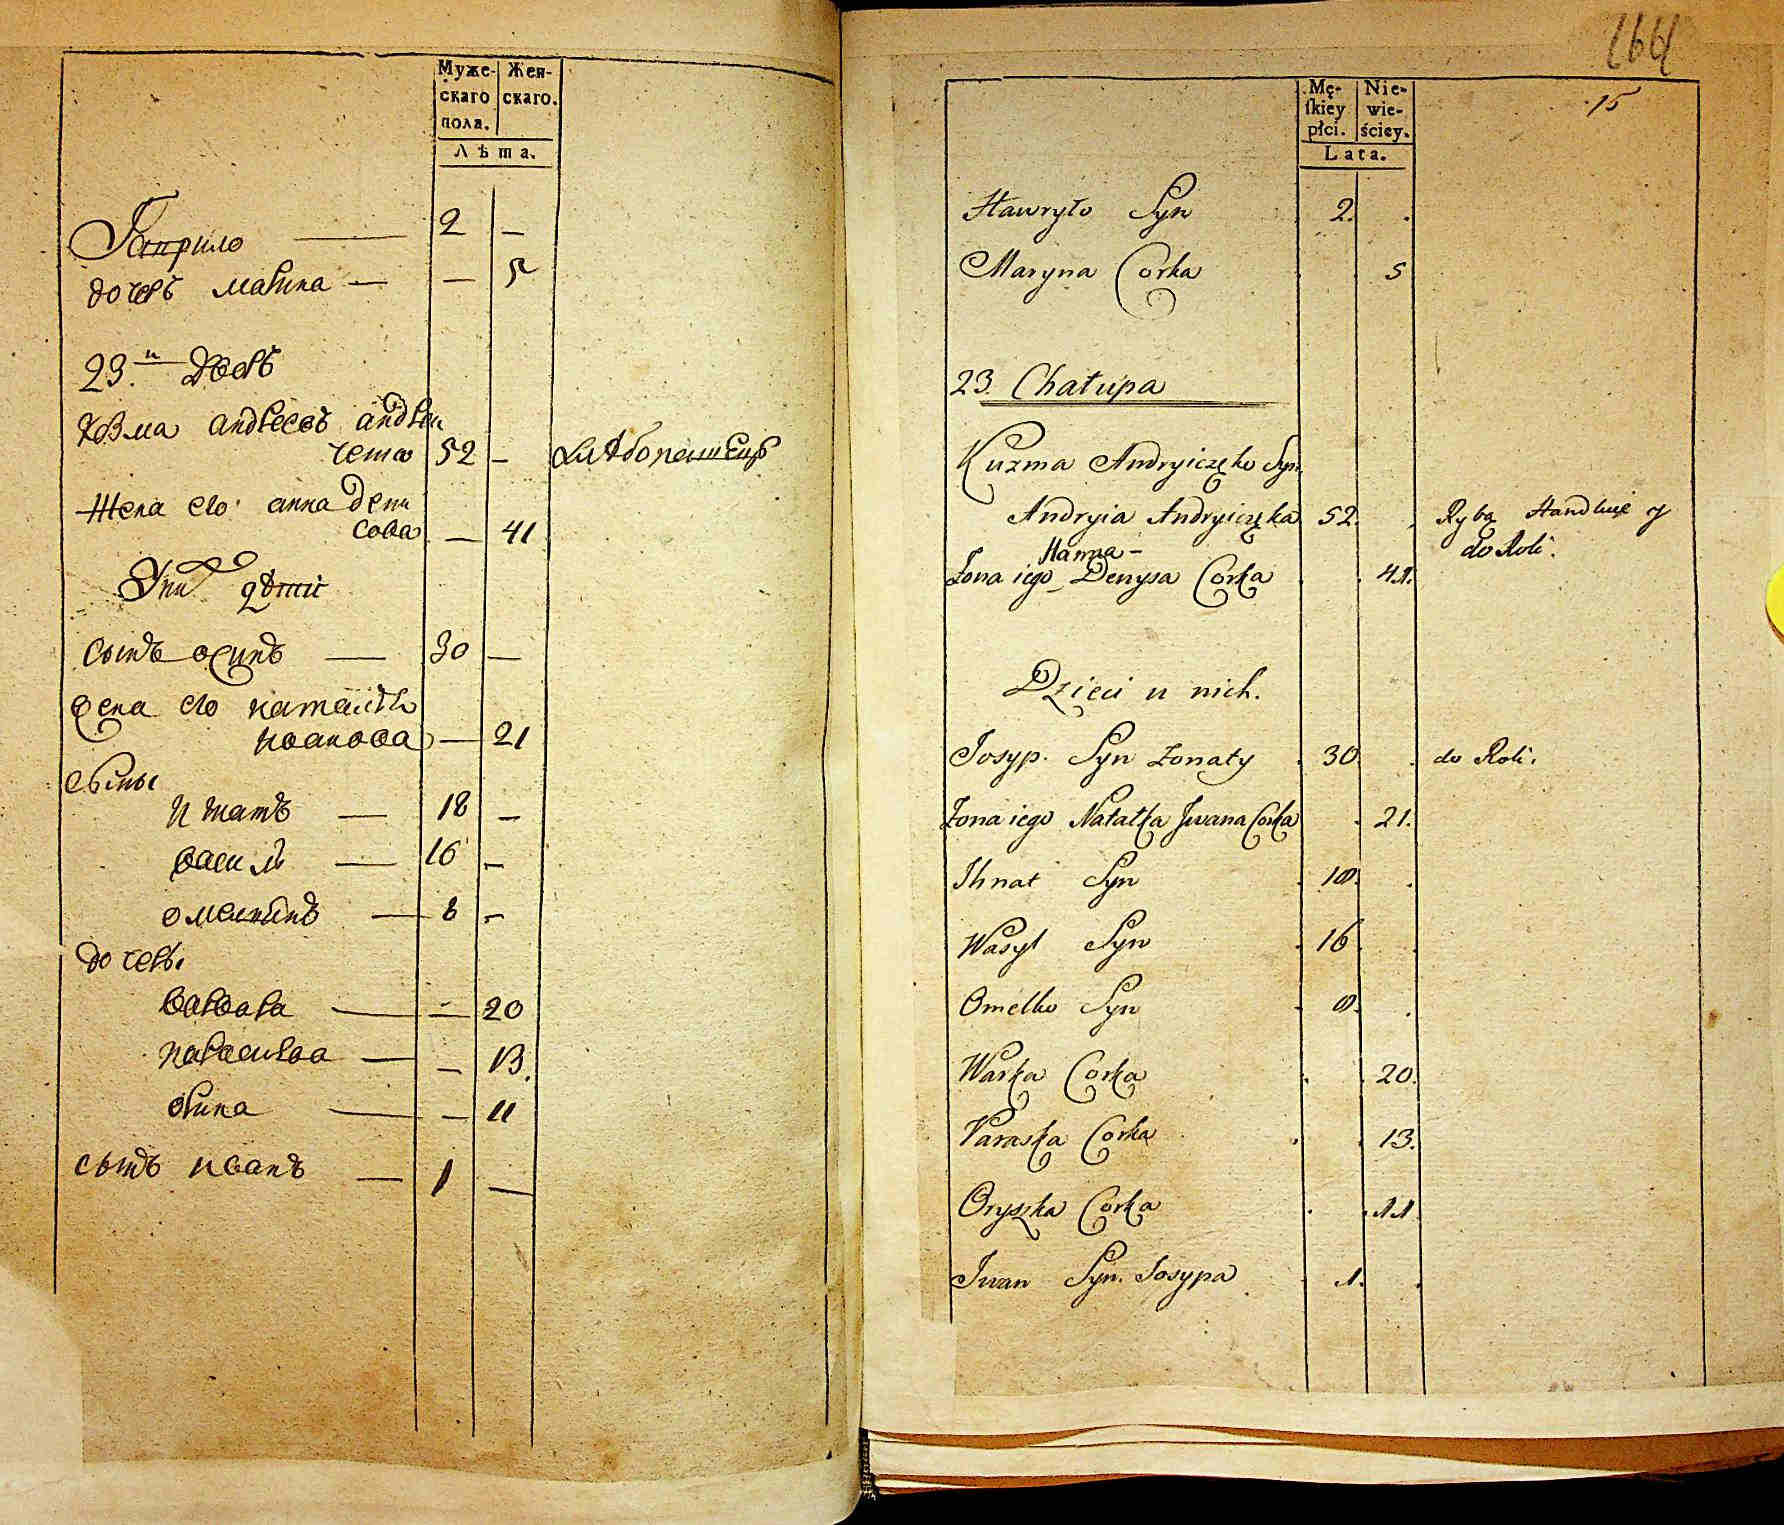 Муже- Жен-
скаго скаго.
пола.
Лѣта.
Гаврило — 2 —
дочерь марина — — 5
23.й Дворъ
Козма андреевъ андреи
чета 52 — хлѣбопашецъ
Жена его анна дени
сова — 41
У них дѣти
сынъ осипъ — 30 —
жена его наталія
иванова — 21
сыны
игнатъ — 18 —
васили — 16 —
омелиянъ — 8 —
дочеры
варвара — — 20
парасиева — — 13.
орина — — 11
сынъ иванъ — 1 —
164
15
Mę- Nie-
ſkiey wie-
płci. ściey.
Lata.
Hawryło Syn 2.
Maryna Corka 5
23. Chałupa
Kuzma Andryiczęko Syn
Andryia Andryiczęka 52. Rybą Handluie y
do Roli.
Hanna -
Zona iego Denysa Corka 41.
Dzieci u nich.
Josyp. Syn żonaty 30 do Roli.
Zona iego Natałka Jwana Corka 21.
Ihnat Syn 18.
Wasyl Syn 16
Omelko Syn 8.
Warka Corka 20.
Paraska Corka 13.
Oryszka Corka 11
Iwan Syn. Josypa 1.